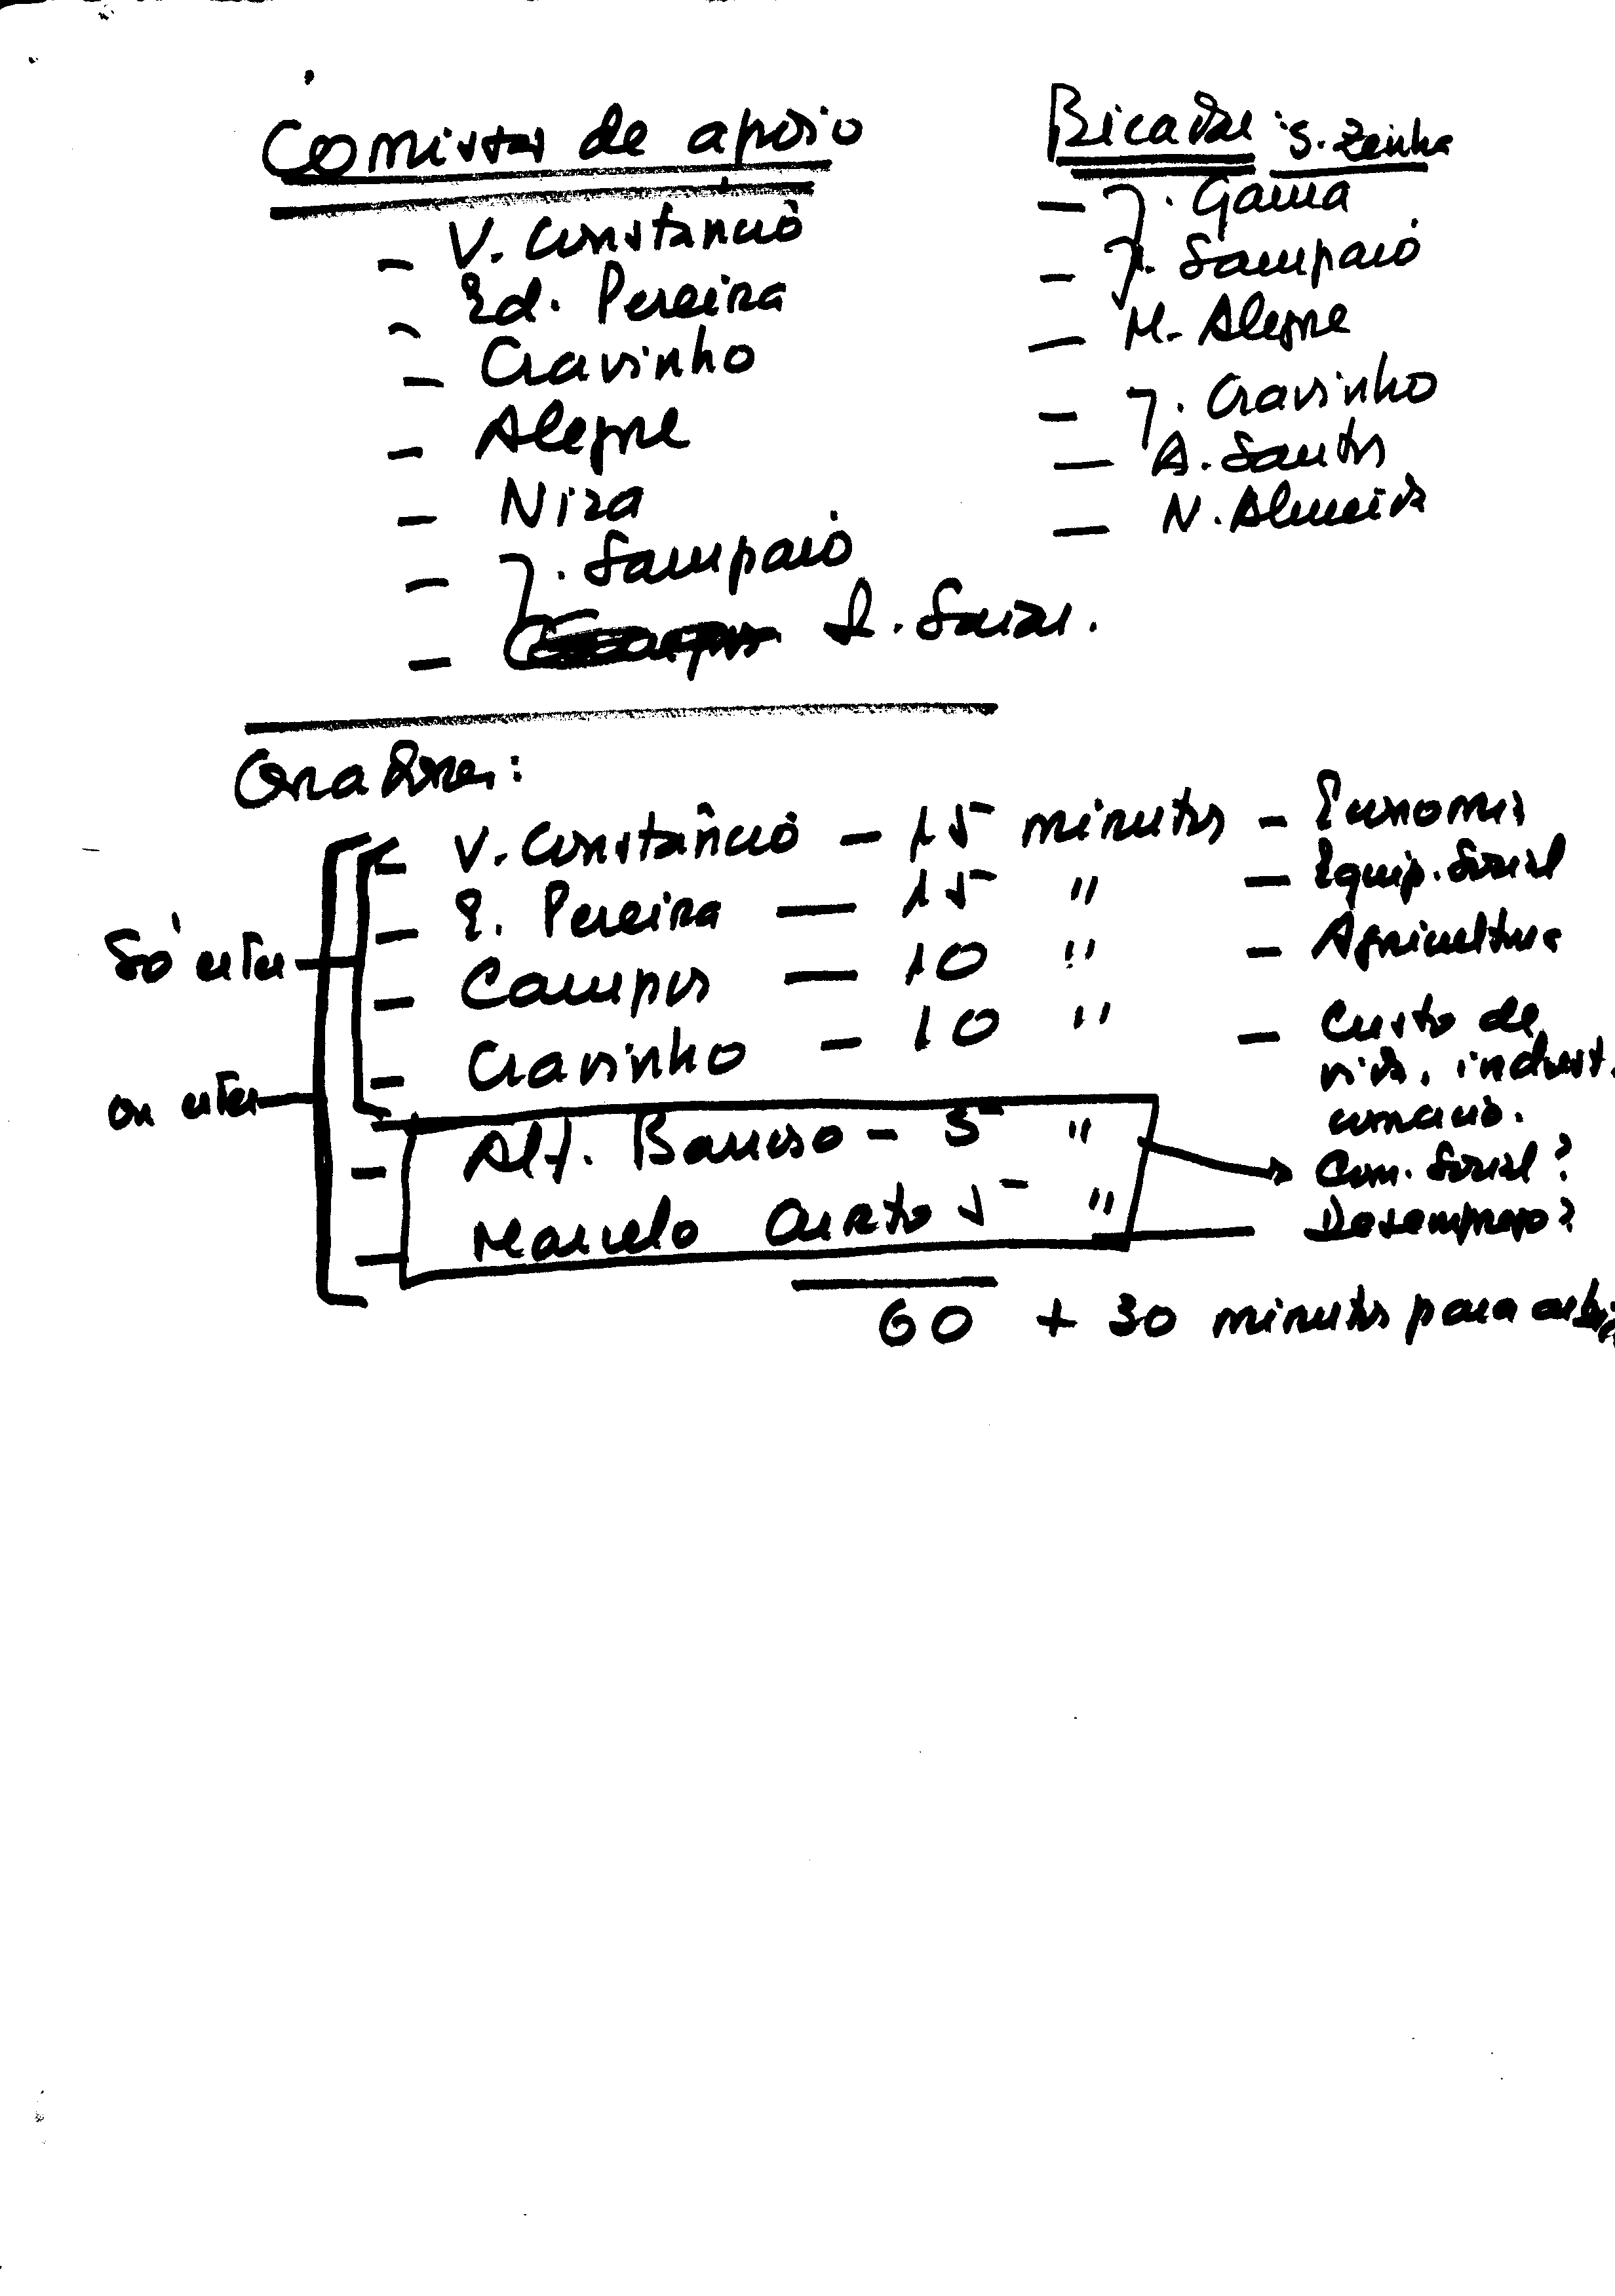 Comissões de apoio
- V. Constâncio
- Ed. Pereira
- Cravinho
- Alegre
- Niza
- J. Sampaio
- S.
Bicadas: S. Zenha
- J. Gama
- J. Sampaio
- M. Alegre
- J. Cravinho
- A. Santos
- N. Almeida
Oradores:
- V. Constâncio - 15 minutos - Economia
- E. Pereira - 15 " - Equip. Social
- Campos - 10 " - Agricultura
- Cravinho - 10 " - Custo de
vida, indust.
comércio.
- Alf. Barroso - 5 " Com. Social?
- Marcelo Curto 5 " Desemprego?
Só estes
ou estes
60 + 30 minutos para